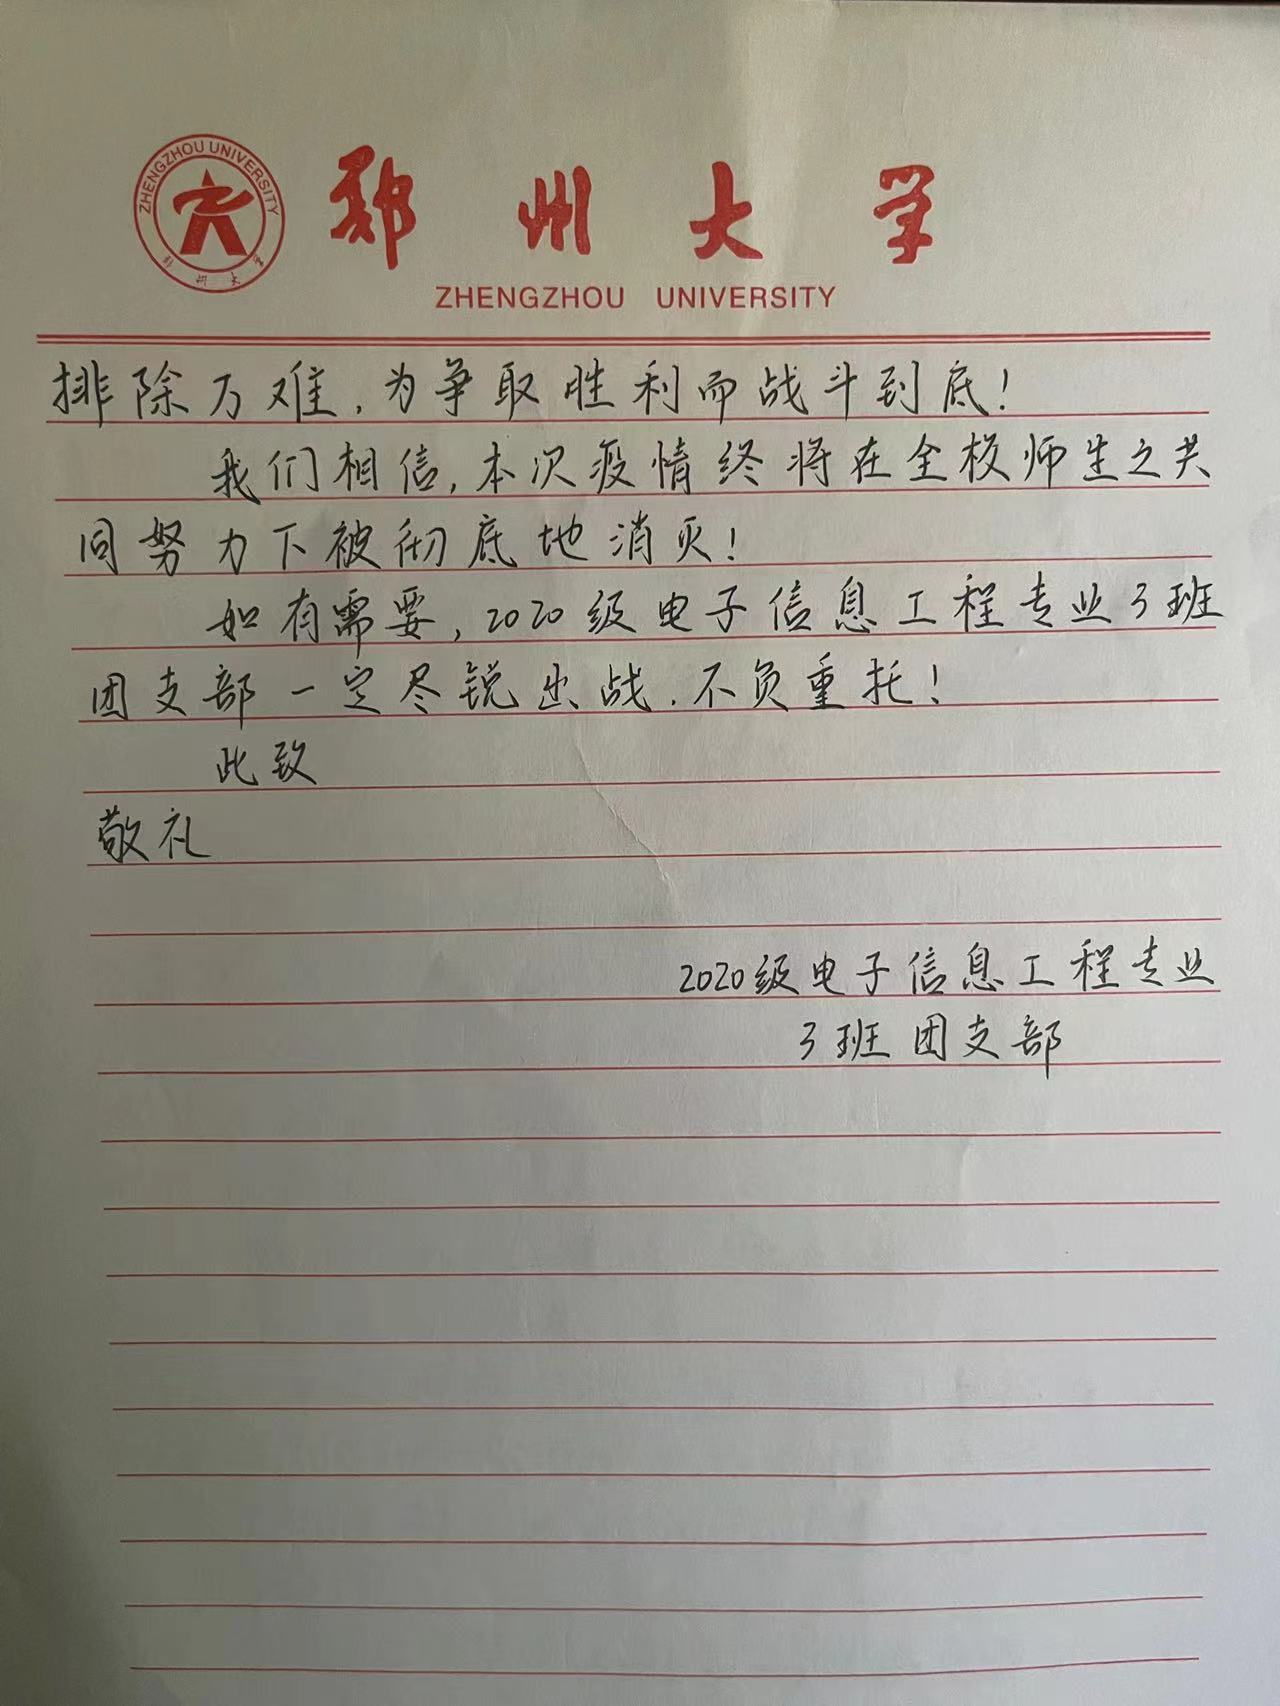 ZHENGZHOU UNIVERSITY
郑州大学
郑州大学
ZHENGZHOU UNIVERSITY
排除万难,为争取胜利而战斗到底!
我们相信,本次疫情终将在全校师生之共
同努力下被彻底地消灭!
如有需要,2020级电子信息工程专业3班
团支部一定尽锐出战.不负重托!
此致
敬礼
2020级电子信息工程专业
3班团支部